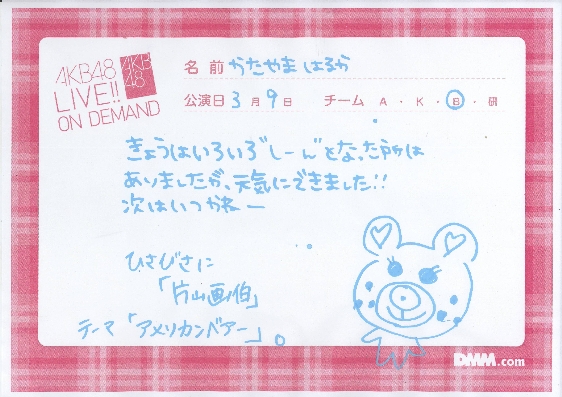 AKB48
LIVE!!
ON DEMAND
AKB
48
名前 かたやま はるか
公演日 3月9日 チーム A・K・B・研
きょうはいろいろ"しーん"となった所は
ありましたが、元気にできました!!
次はいつかねー
ひさびさに
「片山画伯」
テーマ「アメリカンベアー」。
DMM.com